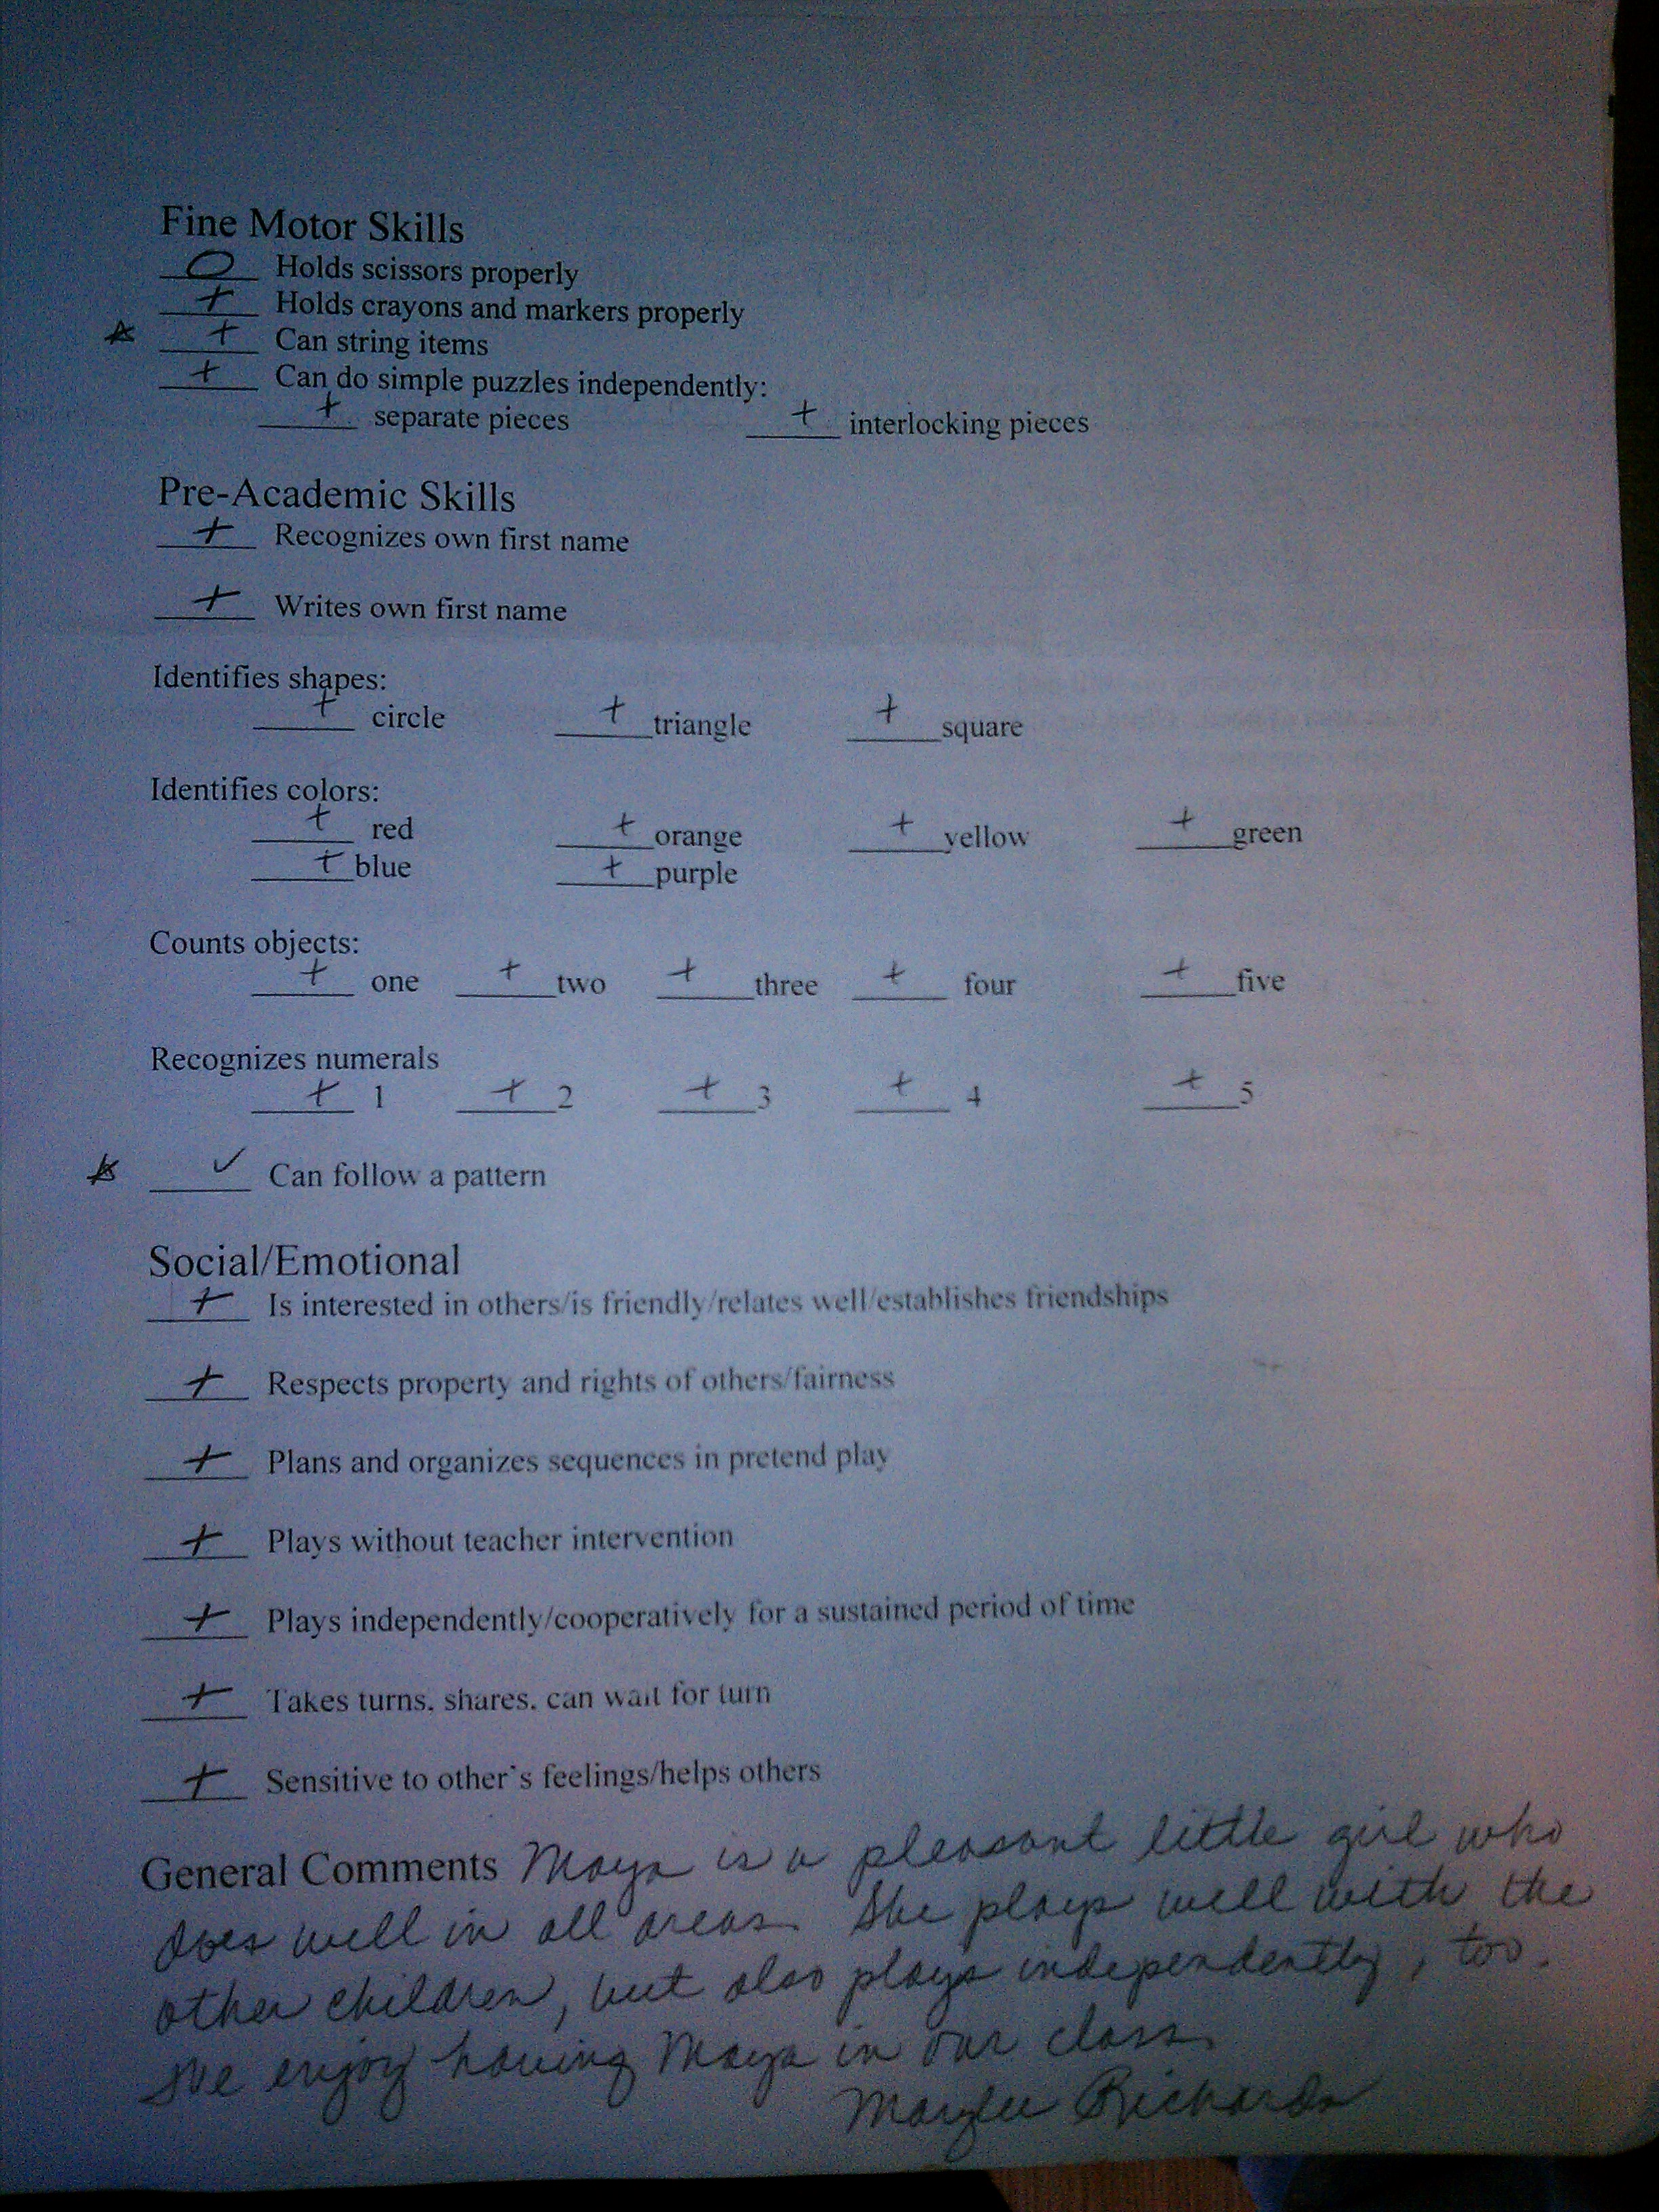 Fine Motor Skills
O Holds scissors properly
+ Holds crayons and markers properly
+ Can string items
+ Can do simple puzzles independently:
+ separate pieces + interlocking pieces
Pre-Academic Skills
+ Recognizes own first name
+ Writes own first name
Identifies shapes:
+ circle + triangle + square
Identifies colors:
+ red + orange + yellow + green
+ blue + purple
Counts objects:
+ one + two + three + four + five
Recognizes numerals
+ 1 + 2 + 3 + 4 + 5
✓ Can follow a pattern
Social/Emotional
+ Is interested in others/is friendly/relates well/establishes friendships
+ Respects property and rights of others/fairness
+ Plans and organizes sequences in pretend play
+ Plays without teacher intervention
+ Plays independently/cooperatively for a sustained period of time
+ Takes turns, shares, can wait for turn
+ Sensitive to other's feelings/helps others
General Comments Maya is a pleasant little girl who
does well in all areas. She plays well with the
other children, but also plays independently, too.
We enjoy having Maya in our class.
Richards